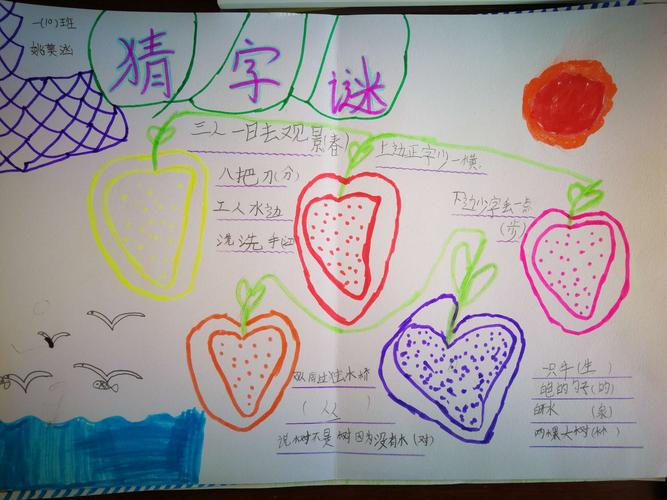 一(10)班
姚
猜字谜
三人一日去观景(春)
八把刀(分)
工人水边
洗洗手(江
上边正字少一横
下边少字丢一点
(步)
双 过独木桥
( 从 )
说树不是树因为没有木(对)
一只牛(生 )
(的)
白水 (泉)
两棵大树(林 )